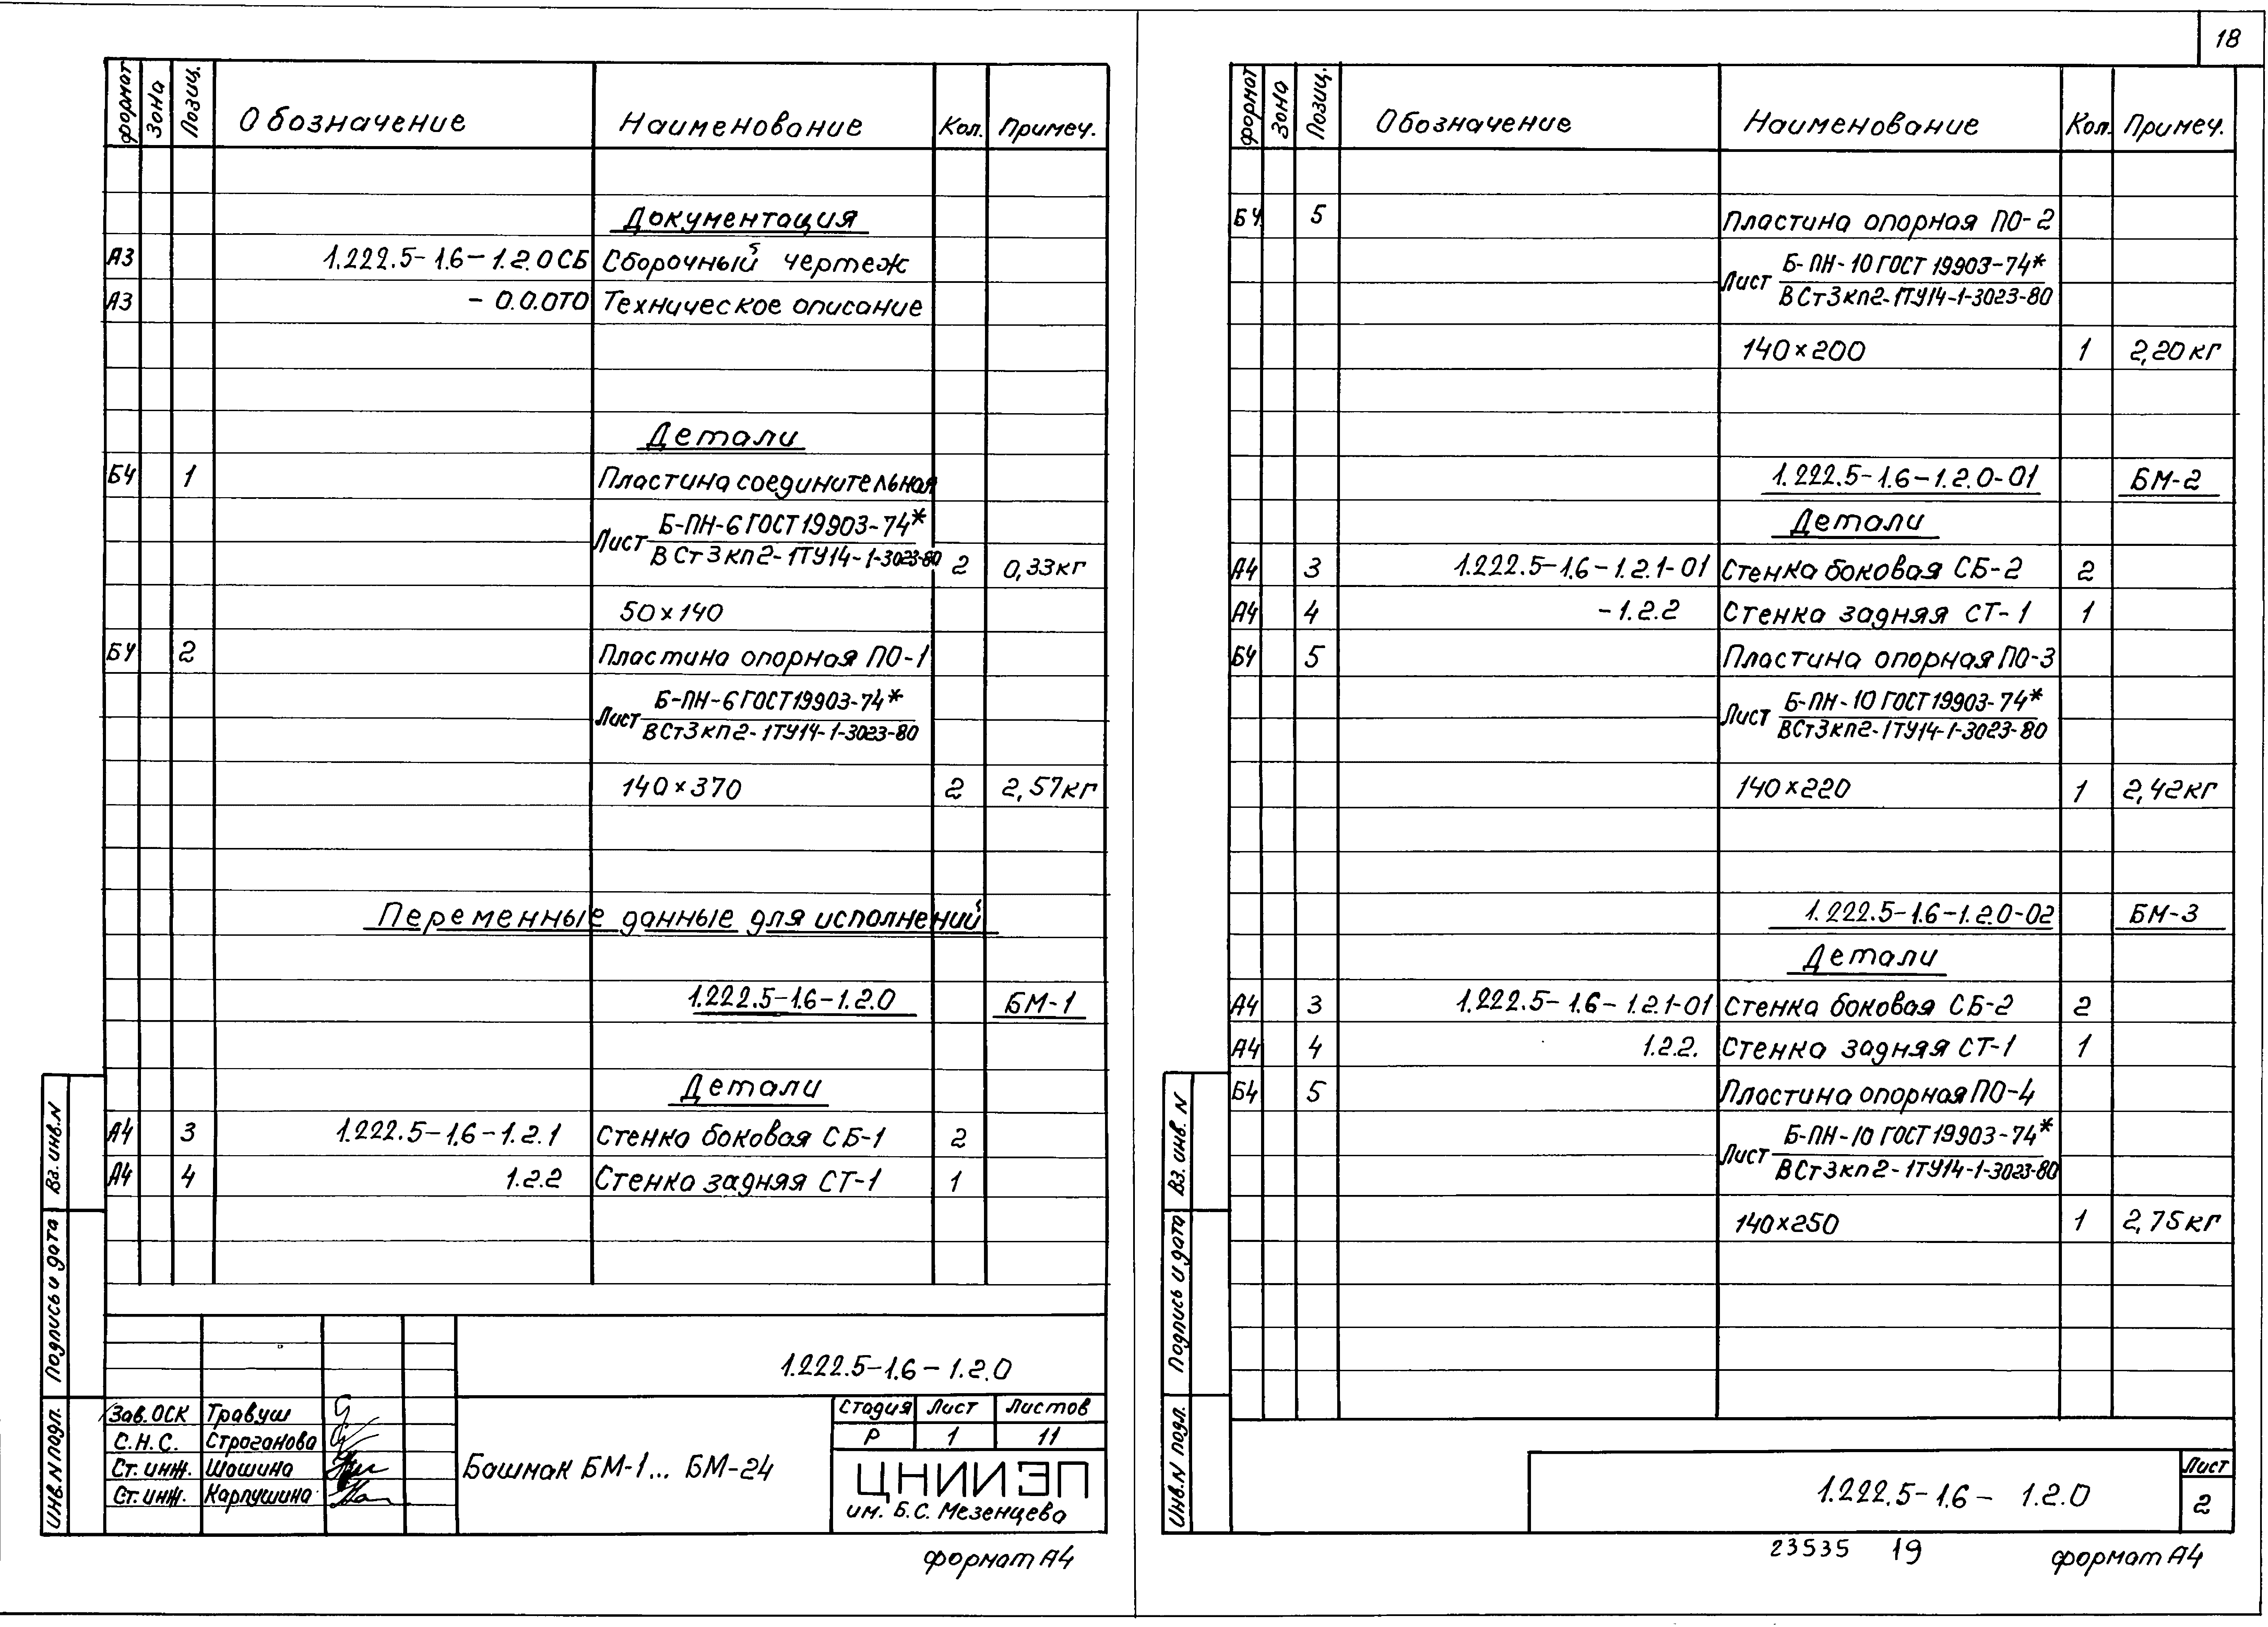 18
формат Зона Позиц. Обозначение Наименование Кол. Примеч.
Документация
А3 1.222.5-1.6-1.2.0 СБ Сборочный чертеж
А3 - 0.0.0ТО Техническое описание
Детали
БЧ 1 Пластина соединительная
Лист Б-ПН-6 ГОСТ 19903-74*
ВСт3кп2-1ТУ14-1-3023-80 2 0,33кг
50×140
БЧ 2 Пластина опорная ПО-1
Лист Б-ПН-6 ГОСТ 19903-74*
ВСт3кп2-1ТУ14-1-3023-80
140×370 2 2,57кг
Переменные данные для исполнений
1.222.5-1.6-1.2.0 БМ-1
Детали
А4 3 1.222.5-1.6-1.2.1 Стенка боковая СБ-1 2
А4 4 1.2.2 Стенка задняя СТ-1 1
Вз. инв.N
Подпись и дата
Инв.N подл.
1.222.5-1.6-1.2.0
Зав. ОСК Травуш
С.Н.С. Строганова
Ст. инж. Шашина
Ст. инж. Карпушина
Башмак БМ-1... БМ-24
Стадия Лист Листов
Р 1 11
ЦНИИЭП
им. Б.С. Мезенцева
формат А4
формат Зона Позиц. Обозначение Наименование Кол. Примеч.
БЧ 5 Пластина опорная ПО-2
Лист Б-ПН-10 ГОСТ 19903-74*
ВСт3кп2-1ТУ14-1-3023-80
140×200 1 2,20кг
1.222.5-1.6-1.2.0-01 БМ-2
Детали
А4 3 1.222.5-1.6-1.2.1-01 Стенка боковая СБ-2 2
А4 4 -1.2.2 Стенка задняя СТ-1 1
БЧ 5 Пластина опорная ПО-3
Лист Б-ПН-10 ГОСТ 19903-74*
ВСт3кп2-1ТУ14-1-3023-80
140×220 1 2,42кг
1.222.5-1.6-1.2.0-02 БМ-3
Детали
А4 3 1.222.5-1.6-1.2.1-01 Стенка боковая СБ-2 2
А4 4 1.2.2. Стенка задняя СТ-1 1
БЧ 5 Пластина опорная ПО-4
Лист Б-ПН-10 ГОСТ 19903-74*
ВСт3кп2-1ТУ14-1-3023-80
140×250 1 2,75кг
Вз. инв. N
Подпись и дата
Инв.N подл.
1.222.5-1.6- 1.2.0
Лист
2
23535 19 формат А4